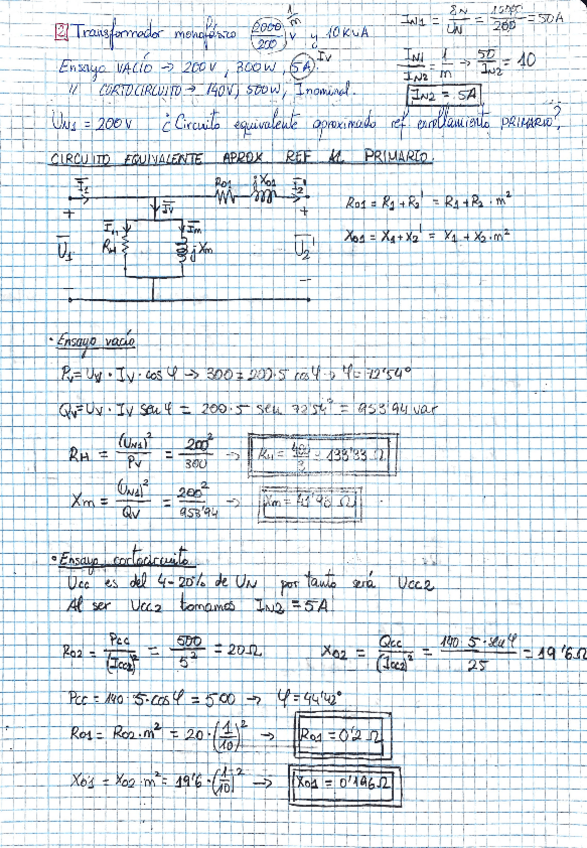 2 Transformador monofásico 2000/200 V y 10 KVA
1/m
IN1 = SN/UN = 10000/200 = 50A
Ensayo VACÍO → 200V, 300W, 5A
IV
IN1/IN2 = 1/m → 50/IN2 = 10
" CORTOCIRCUITO → 140V, 500W, Inominal.
IN2 = 5A
UN1 = 200V ¿Circuito equivalente aproximado ref enrollamiento PRIMARIO?
CIRCUITO EQUIVALENTE APROX REF AL PRIMARIO.
I1 IV R01 jX01 I2'
R01 = R1 + R2' = R1 + R2 · m²
+ RH Im jXm +
U1 U2'
X01 = X1 + X2' = X1 + X2 · m²
- -
· Ensayo vacío
Pv = Uv · Iv · cos φ → 300 = 200·5 cos φ → φ = 72'54°
Qv = Uv · Iv sen φ = 200·5 sen 72'54° = 953'94 var
RH = (UN1)²/PV = 200²/300 → RH = 400/3 = 133'33 Ω
Xm = (UN1)²/QV = 200²/953'94 → Xm = 41'93 Ω
· Ensayo cortocircuito
Ucc es del 4-20% de UN por tanto será Ucc2
Al ser Ucc2 tomamos IN2 = 5A
R02 = Pcc/(Icc2)² = 500/5² = 20Ω X02 = Qcc/(Icc2)² = 140·5·sen φ/25 = 19'6Ω
Pcc = 140·5·cos φ = 500 → φ = 44'42°
R01 = R02·m² = 20·(1/10)² → R01 = 0'2 Ω
X01 = X02·m² = 19'6·(1/10)² → X01 = 0'196Ω